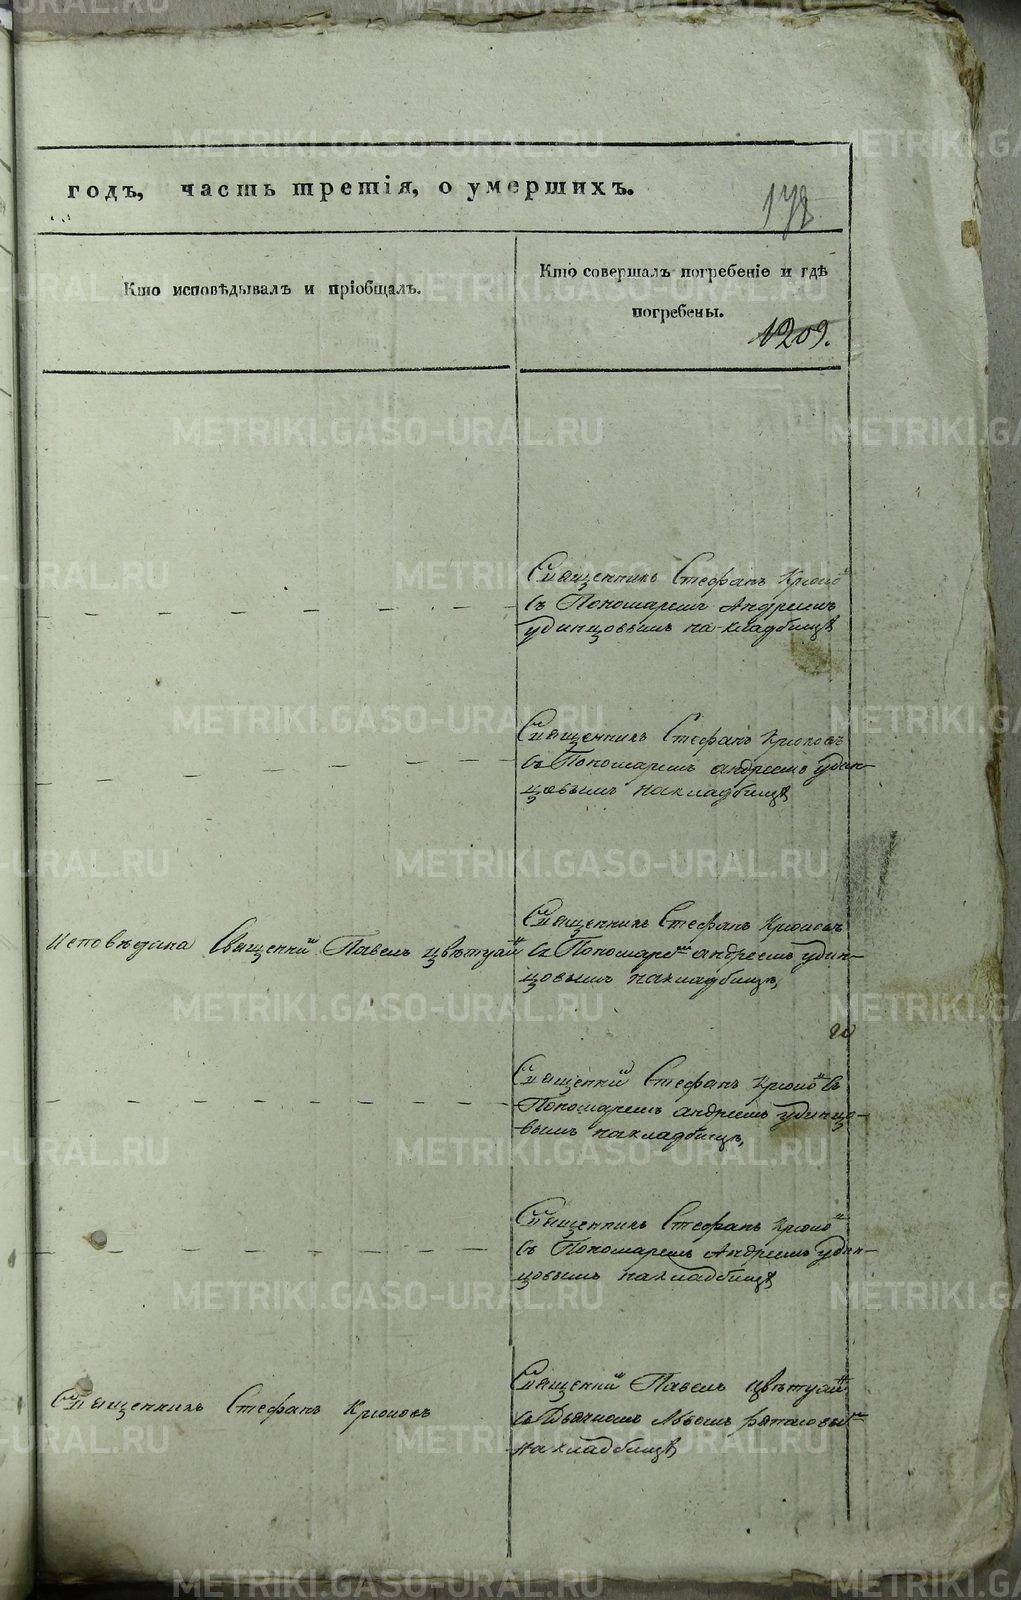 годъ, часть третія, о умершихъ.
178
Кто исповѣдывалъ и пріобщалъ.
Кто совершалъ погребеніе и гдѣ
погребены.
1209.
Священникъ Стефанъ Крюко
съ Пономаремъ Андреемъ
удинцовымъ на кладбищѣ
Священникъ Стефанъ Крюковъ
съ Пономаремъ андреемъ удин-
цовымъ на кладбищѣ
Исповѣдана Священни Павелъ
Священникъ Стефанъ Крюковъ
съ Пономаре андреемъ удин-
цовымъ на кладбищѣ,
Священни Стефанъ Крюко съ
Пономаремъ андреемъ удинцо-
вымъ на кладбищѣ,
Священникъ Стефанъ Крюко
съ Пономаремъ Андреемъ удин-
цовымъ на кладбищѣ
Священникъ Стефанъ Крюковъ
Священни Павелъ
съ Дьячкомъ
на кладбищѣ
METRIKI.GASO-URAL.RU